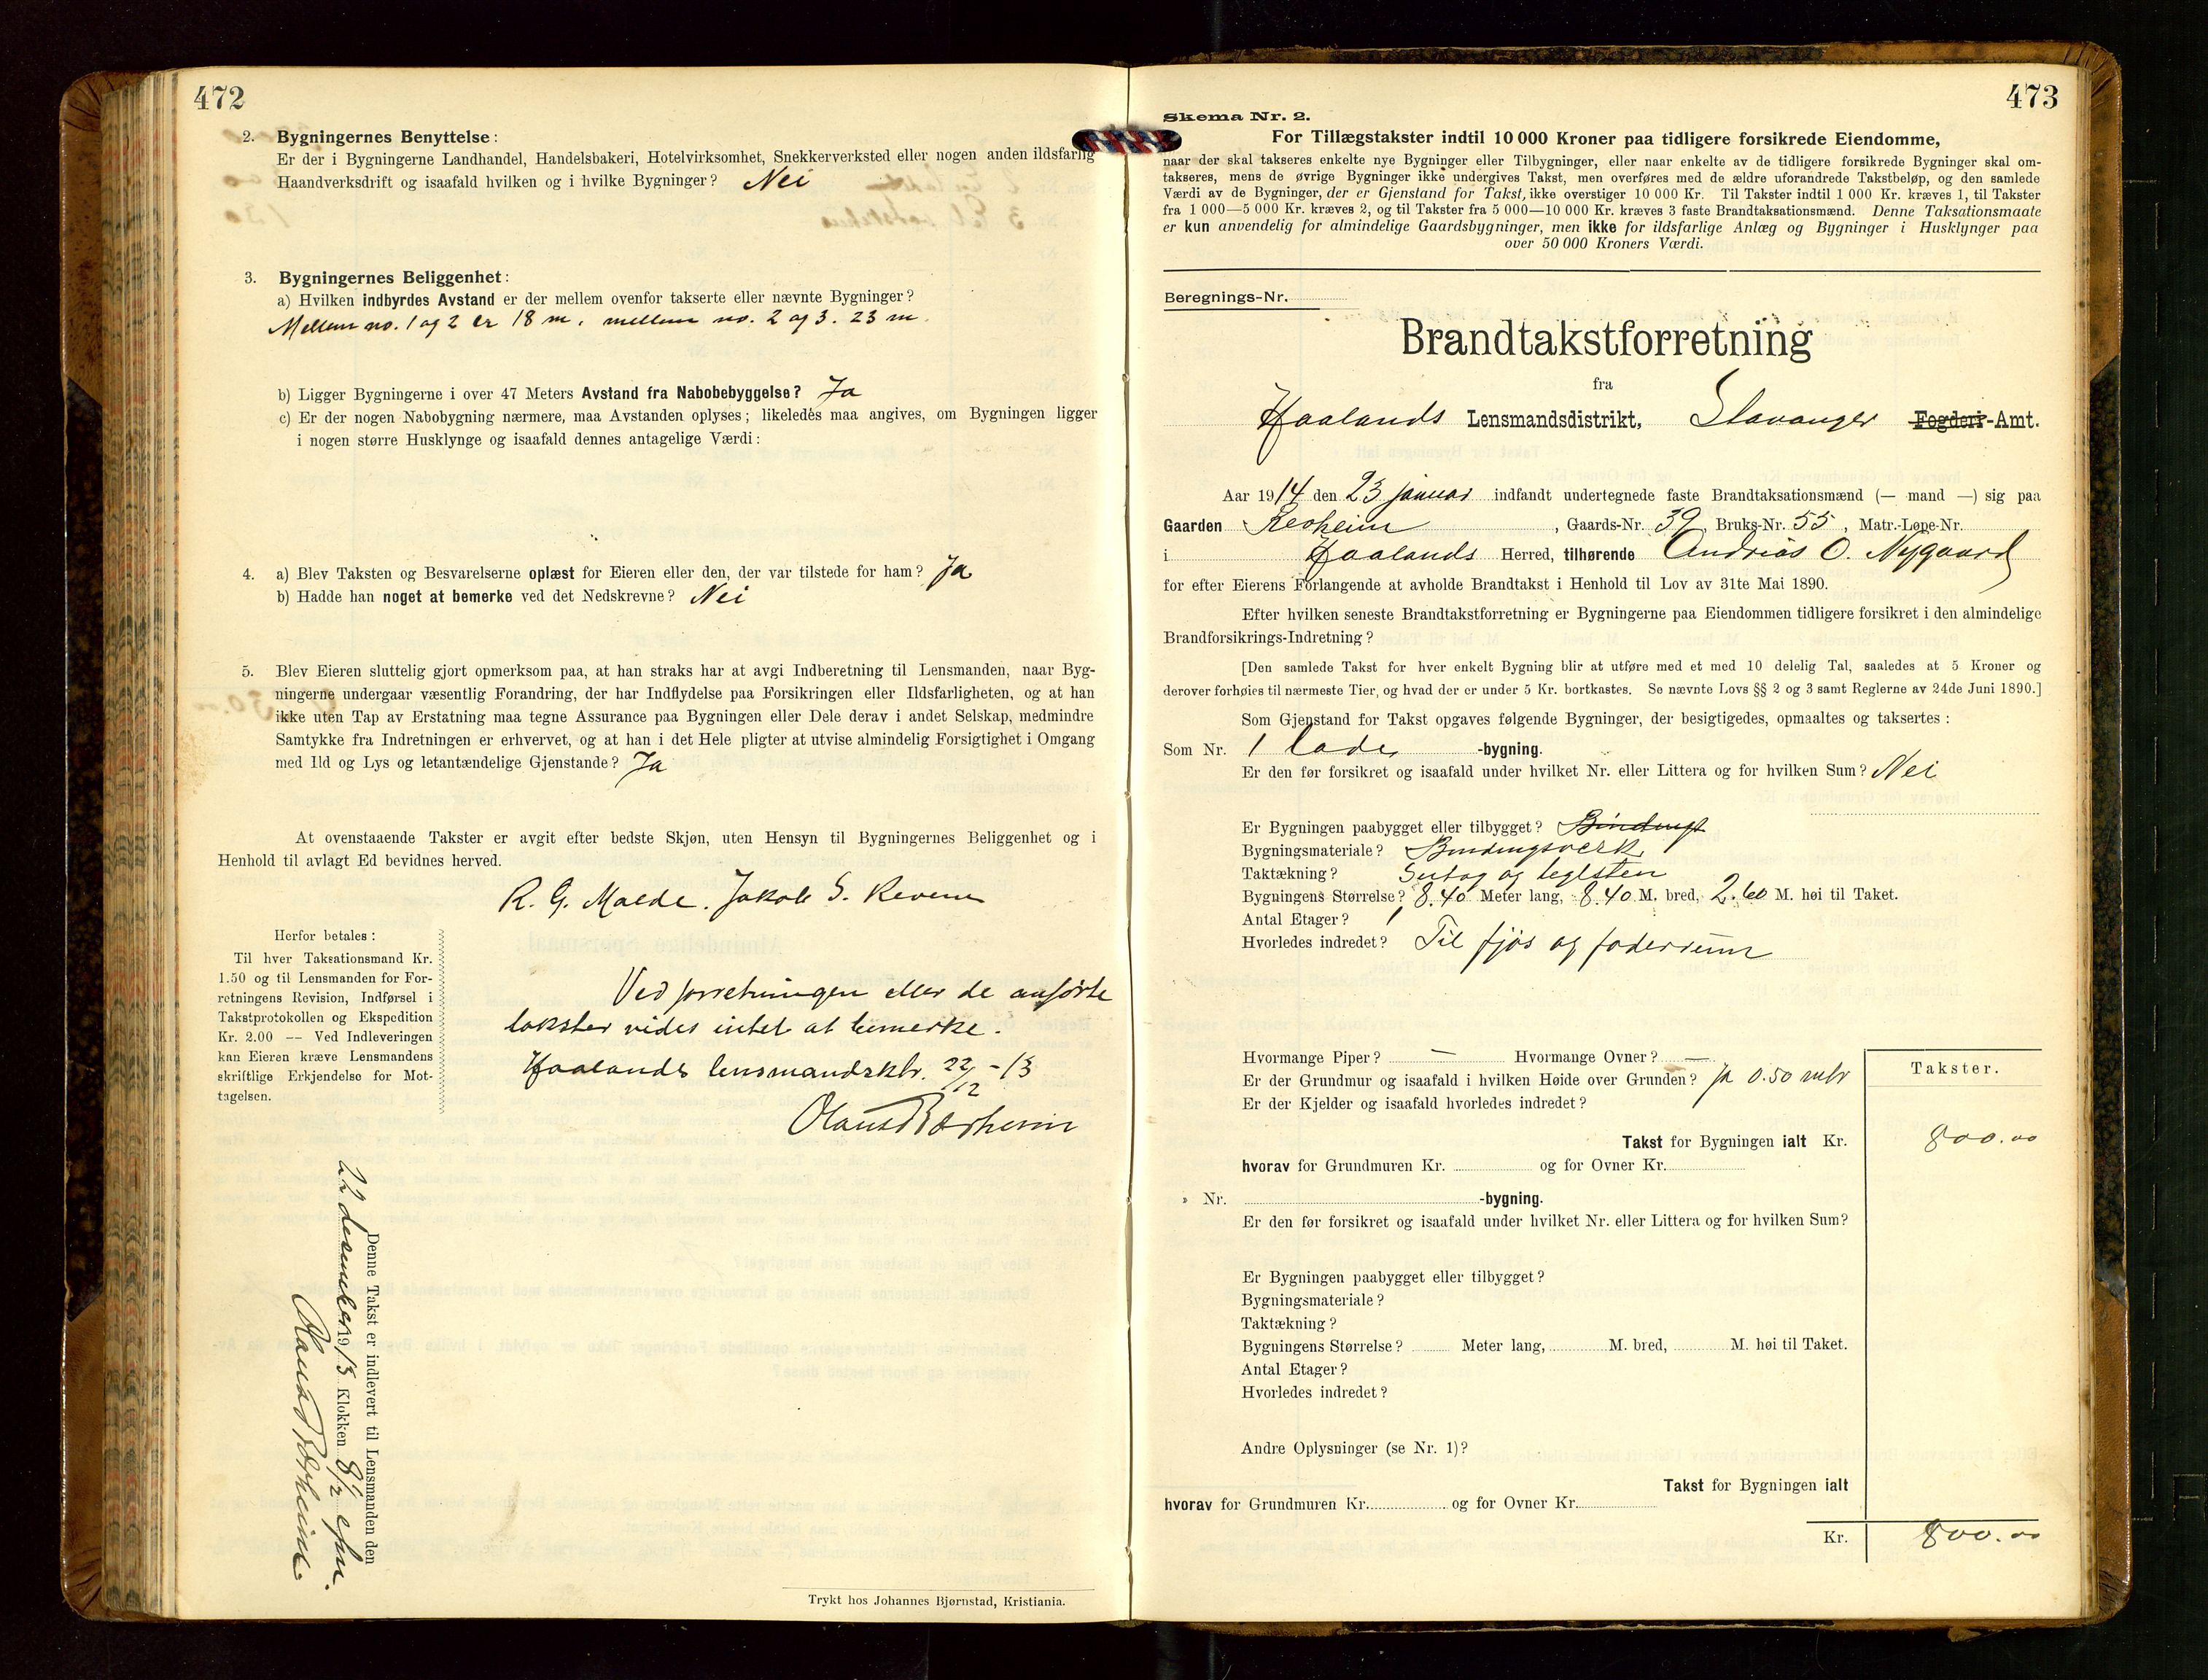 472
2. Bygningernes Benyttelse:
Er der i Bygningerne Landhandel, Handelsbakeri, Hotelvirksomhet, Snekkerverksted eller nogen anden ildsfarlig
Haandverksdrift og isaafald hvilken og i hvilke Bygninger? Nei
3. Bygningernes Beliggenhet:
a) Hvilken indbyrdes Avstand er der mellem ovenfor takserte eller nævnte Bygninger?
Mellem no. 1 og 2 er 18 m, mellem no. 2 og 3. 23 m.
b) Ligger Bygningerne i over 47 Meters Avstand fra Nabobebyggelse? Ja
c) Er der nogen Nabobygning nærmere, maa Avstanden oplyses; likeledes maa angives, om Bygningen ligger
i nogen større Husklynge og isaafald dennes antagelige Værdi:
4. a) Blev Taksten og Besvarelserne oplæst for Eieren eller den, der var tilstede for ham? Ja
b) Hadde han noget at bemerke ved det Nedskrevne? Nei
5. Blev Eieren sluttelig gjort opmerksom paa, at han straks har at avgi Indberetning til Lensmanden, naar Byg-
ningerne undergaar væsentlig Forandring, der har Indflydelse paa Forsikringen eller Ildsfarligheten, og at han
ikke uten Tap av Erstatning maa tegne Assurance paa Bygningen eller Dele derav i andet Selskap, medmindre
Samtykke fra Indretningen er erhvervet, og at han i det Hele pligter at utvise almindelig Forsigtighet i Omgang
med Ild og Lys og letantændelige Gjenstande? Ja
At ovenstaaende Takster er avgit efter bedste Skjøn, uten Hensyn til Bygningernes Beliggenhet og i
Henhold til avlagt Ed bevidnes herved.
R. G. Malde. Jakob S. Revem
Herfor betales:
Til hver Taksationsmand Kr.
1.50 og til Lensmanden for For-
retningens Revision, Indførsel i
Takstprotokollen og Ekspedition
Kr. 2.00 -- Ved Indleveringen
kan Eieren kræve Lensmandens
skriftlige Erkjendelse for Mot-
tagelsen.
Ved forretningen eller de anførte
takster vides intet at bemerke.
Haalands lensmandsktr. 22/12 - 13
Olaus Bærheim
Denne Takst er indlevert til Lensmanden den
22 december 1913 Klokken 8 1/2 efm.
Olaus Bærheim.
Trykt hos Johannes Bjørnstad, Kristiania.
473
Skema Nr. 2.
For Tillægstakster indtil 10 000 Kroner paa tidligere forsikrede Eiendomme,
naar der skal takseres enkelte nye Bygninger eller Tilbygninger, eller naar enkelte av de tidligere forsikrede Bygninger skal om-
takseres, mens de øvrige Bygninger ikke undergives Takst, men overføres med de ældre uforandrede Takstbeløp, og den samlede
Værdi av de Bygninger, der er Gjenstand for Takst, ikke overstiger 10 000 Kr. Til Takster indtil 1 000 Kr. kræves 1, til Takster
fra 1 000—5 000 Kr. kræves 2, og til Takster fra 5 000—10 000 Kr. kræves 3 faste Brandtaksationsmænd. Denne Taksationsmaate
er kun anvendelig for almindelige Gaardsbygninger, men ikke for ildsfarlige Anlæg og Bygninger i Husklynger paa
over 50 000 Kroners Værdi.
Beregnings-Nr.
Brandtakstforretning
fra
Haalands Lensmandsdistrikt, Stavanger Fogderi-Amt.
Aar 1914 den 23 januar indfandt undertegnede faste Brandtaksationsmænd (— mand —) sig paa
Gaarden Revheim, Gaards-Nr. 39, Bruks-Nr. 55, Matr.-Løpe-Nr.
i Haalands Herred, tilhørende Andrias O. Nygaard
for efter Eierens Forlangende at avholde Brandtakst i Henhold til Lov av 31te Mai 1890.
Efter hvilken seneste Brandtakstforretning er Bygningerne paa Eiendommen tidligere forsikret i den almindelige
Brandforsikrings-Indretning?
[Den samlede Takst for hver enkelt Bygning blir at utføre med et med 10 delelig Tal, saaledes at 5 Kroner og
derover forhøies til nærmeste Tier, og hvad der er under 5 Kr. bortkastes. Se nævnte Lovs §§ 2 og 3 samt Reglerne av 24de Juni 1890.]
Som Gjenstand for Takst opgaves følgende Bygninger, der besigtigedes, opmaaltes og taksertes:
Som Nr. 1 lade -bygning.
Er den før forsikret og isaafald under hvilket Nr. eller Littera og for hvilken Sum? Nei
Er Bygningen paabygget eller tilbygget? Bindingt
Bygningsmateriale? Bindingsverk
Taktækning? Sutag og teglsten
Bygningens Størrelse? 8.40 Meter lang, 8.40 M. bred, 2.60 M. høi til Taket.
Antal Etager? 1
Hvorledes indredet? Til fjøs og foderrum
Hvormange Piper? — Hvormange Ovner? —
Er der Grundmur og isaafald i hvilken Høide over Grunden? Ja 0.50 mtr
Er der Kjelder og isaafald hvorledes indredet?
Takster.
Takst for Bygningen ialt Kr. 800.00
hvorav for Grundmuren Kr. og for Ovner Kr.
» Nr. -bygning.
Er den før forsikret og isaafald under hvilket Nr. eller Littera og for hvilken Sum?
Er Bygningen paabygget eller tilbygget?
Bygningsmateriale?
Taktækning?
Bygningens Størrelse? Meter lang, M. bred, M. høi til Taket.
Antal Etager?
Hvorledes indredet?
Andre Oplysninger (se Nr. 1)?
Takst for Bygningen ialt
hvorav for Grundmuren Kr. og for Ovner Kr.
Kr. 800.00